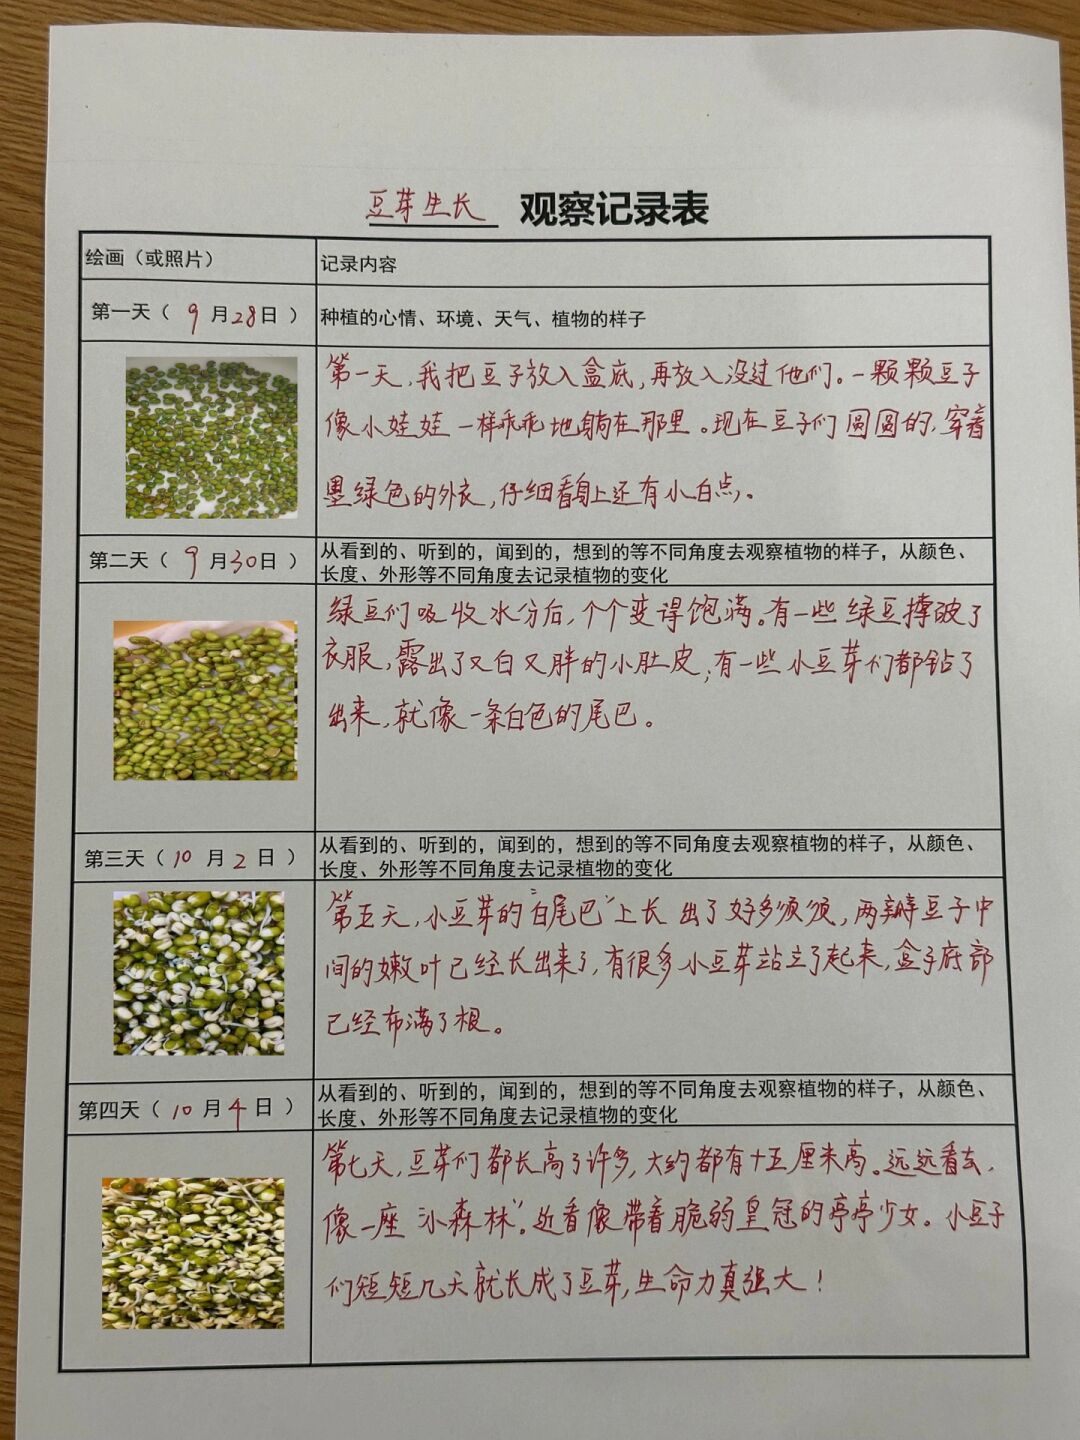 豆芽生长 观察记录表
绘画（或照片）
记录内容
第一天（ 9 月28日 ）
种植的心情、环境、天气、植物的样子
第一天,我把豆子放入盒底,再放入没过他们。一颗颗豆子
像小娃娃一样乖乖地躺在那里。现在豆子们圆圆的,穿着
墨绿色的外衣,仔细看身上还有小白点,。
第二天（ 9 月30日 ）
从看到的、听到的，闻到的，想到的等不同角度去观察植物的样子，从颜色、
长度、外形等不同角度去记录植物的变化
绿豆们吸收水分后,个个变得饱满。有一些绿豆撑破了
衣服,露出了又白又胖的小肚皮;有一些小豆芽们都钻了
出来,就像一条白色的尾巴。
第三天（ 10 月 2 日 ）
从看到的、听到的，闻到的，想到的等不同角度去观察植物的样子，从颜色、
长度、外形等不同角度去记录植物的变化
第五天,小豆芽的“白尾巴”上长出了好多须须,两瓣豆子中
间的嫩叶已经长出来了,有很多小豆芽站立了起来,盒子底部
已经布满了根。
第四天（ 10 月 4 日 ）
从看到的、听到的，闻到的，想到的等不同角度去观察植物的样子，从颜色、
长度、外形等不同角度去记录植物的变化
第七天,豆芽们都长高了许多,大约都有十五厘米高。远远看去,
像一座“小森林”。近看像带着脆弱皇冠的亭亭少女。小豆子
们短短几天就长成了豆芽,生命力真强大!